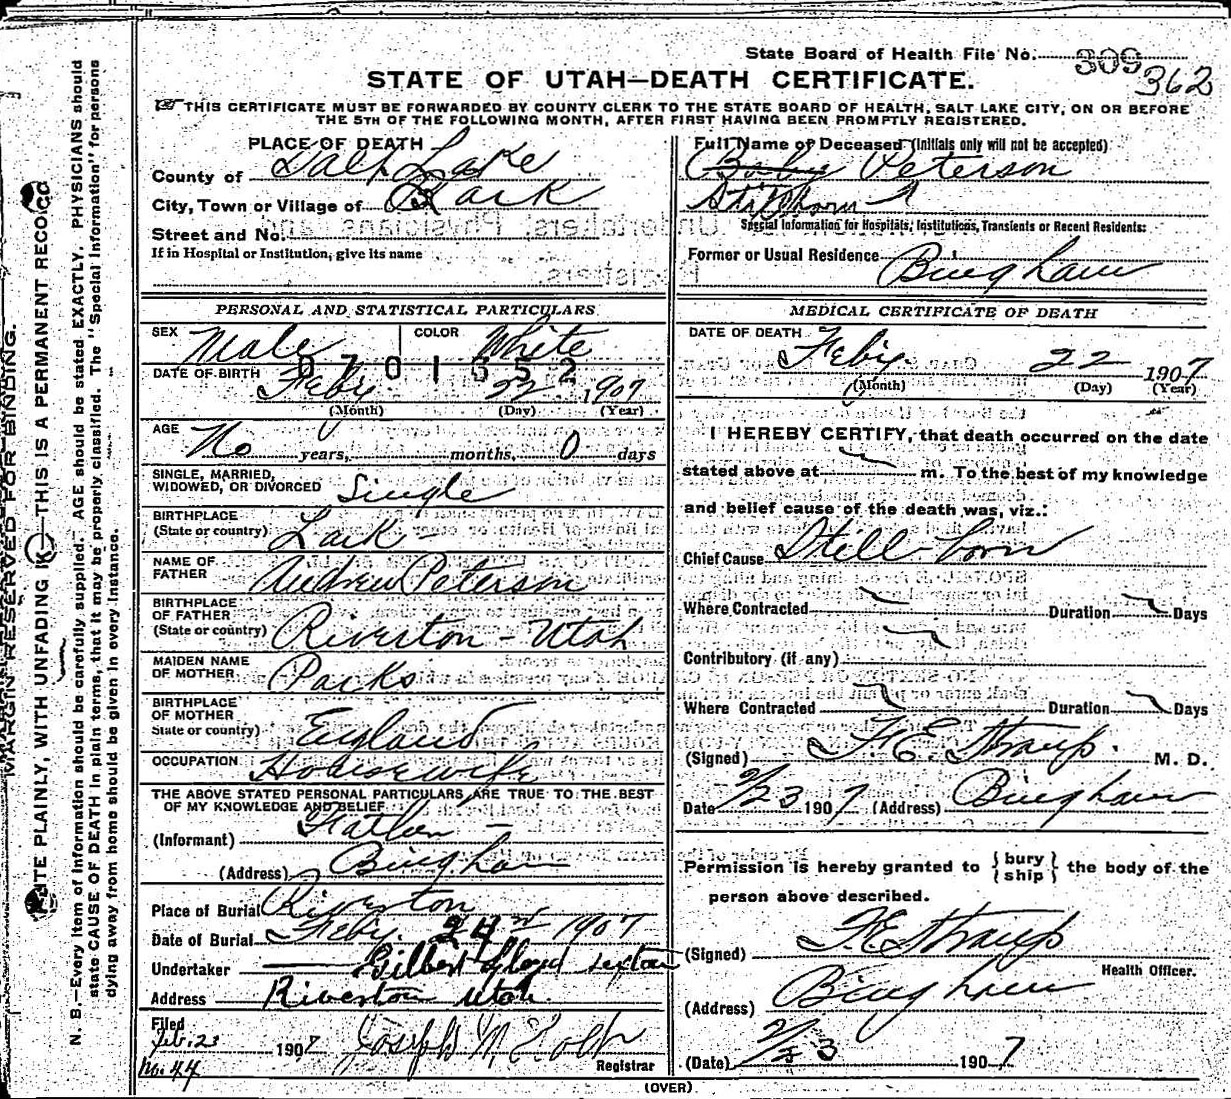 State Board of Health File No. 309
362
STATE OF UTAH—DEATH CERTIFICATE.
THIS CERTIFICATE MUST BE FORWARDED BY COUNTY CLERK TO THE STATE BOARD OF HEALTH, SALT LAKE CITY, ON OR BEFORE
THE 5TH OF THE FOLLOWING MONTH, AFTER FIRST HAVING BEEN PROMPTLY REGISTERED.
PLACE OF DEATH
County of Salt Lake
City, Town or Village of Lark
Street and No.
If in Hospital or Institution, give its name
Full Name of Deceased (Initials only will not be accepted)
Baby Peterson
Stillborn
Special Information for Hospitals, Institutions, Transients or Recent Residents:
Former or Usual Residence Bingham
PERSONAL AND STATISTICAL PARTICULARS
SEX Male COLOR White
0701352
DATE OF BIRTH Feby. 22 1907
(Month) (Day) (Year)
AGE No years, months, 0 days
SINGLE, MARRIED,
WIDOWED, OR DIVORCED Single
BIRTHPLACE
(State or country) Lark -
NAME OF
FATHER Andrew Peterson
BIRTHPLACE
OF FATHER
(State or country) Riverton - Utah
MAIDEN NAME
OF MOTHER Parks
BIRTHPLACE
OF MOTHER
State or country) England
OCCUPATION Housewife
THE ABOVE STATED PERSONAL PARTICULARS ARE TRUE TO THE BEST
OF MY KNOWLEDGE AND BELIEF
(Informant) Father -
(Address) Bingham
Place of Burial Riverton
Date of Burial Feby. 24 1907
Undertaker Gilbert Lloyd sexton
Address Riverton Utah
Filed
Feb. 23 1907 Joseph M.
Registrar
No. 44
MEDICAL CERTIFICATE OF DEATH
DATE OF DEATH Feby. 22 1907
(Month) (Day) (Year)
I HEREBY CERTIFY, that death occurred on the date
stated above at m. To the best of my knowledge
and belief cause of the death was, viz.:
Chief Cause Still-born
Where Contracted Duration Days
Contributory (if any)
Where Contracted Duration Days
(Signed) F. E. Straup. M. D.
Date 2/23 1907 (Address) Bingham
Permission is hereby granted to {bury
ship} the body of the
person above described.
(Signed) F. E. Straup
Health Officer.
(Address) Bingham
(Date) 2/23 1907
(OVER)
MARGIN RESERVED FOR BINDING.
WRITE PLAINLY, WITH UNFADING INK—THIS IS A PERMANENT RECORD
N. B.—Every item of information should be carefully supplied. AGE should be stated EXACTLY. PHYSICIANS should
state CAUSE OF DEATH in plain terms, that it may be properly classified. The "Special Information" for persons
dying away from home should be given in every instance.